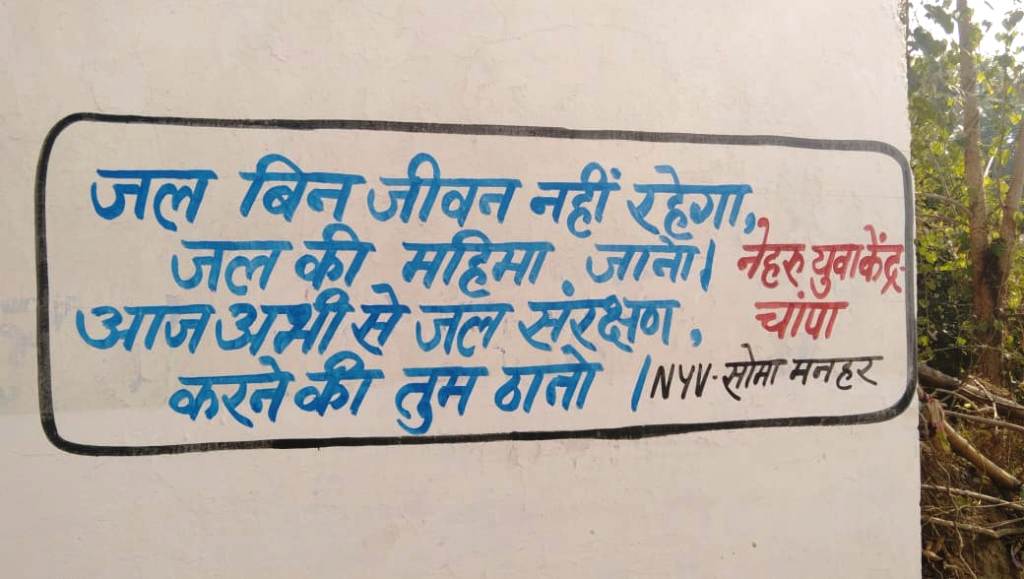 जल बिन जीवन नहीं रहेगा,
जल की महिमा जानो।
आज अभी से जल संरक्षण,
करने की तुम ठानो।
नेहरु युवा केंद्र-
चांपा
NYV-सोमा मनहर